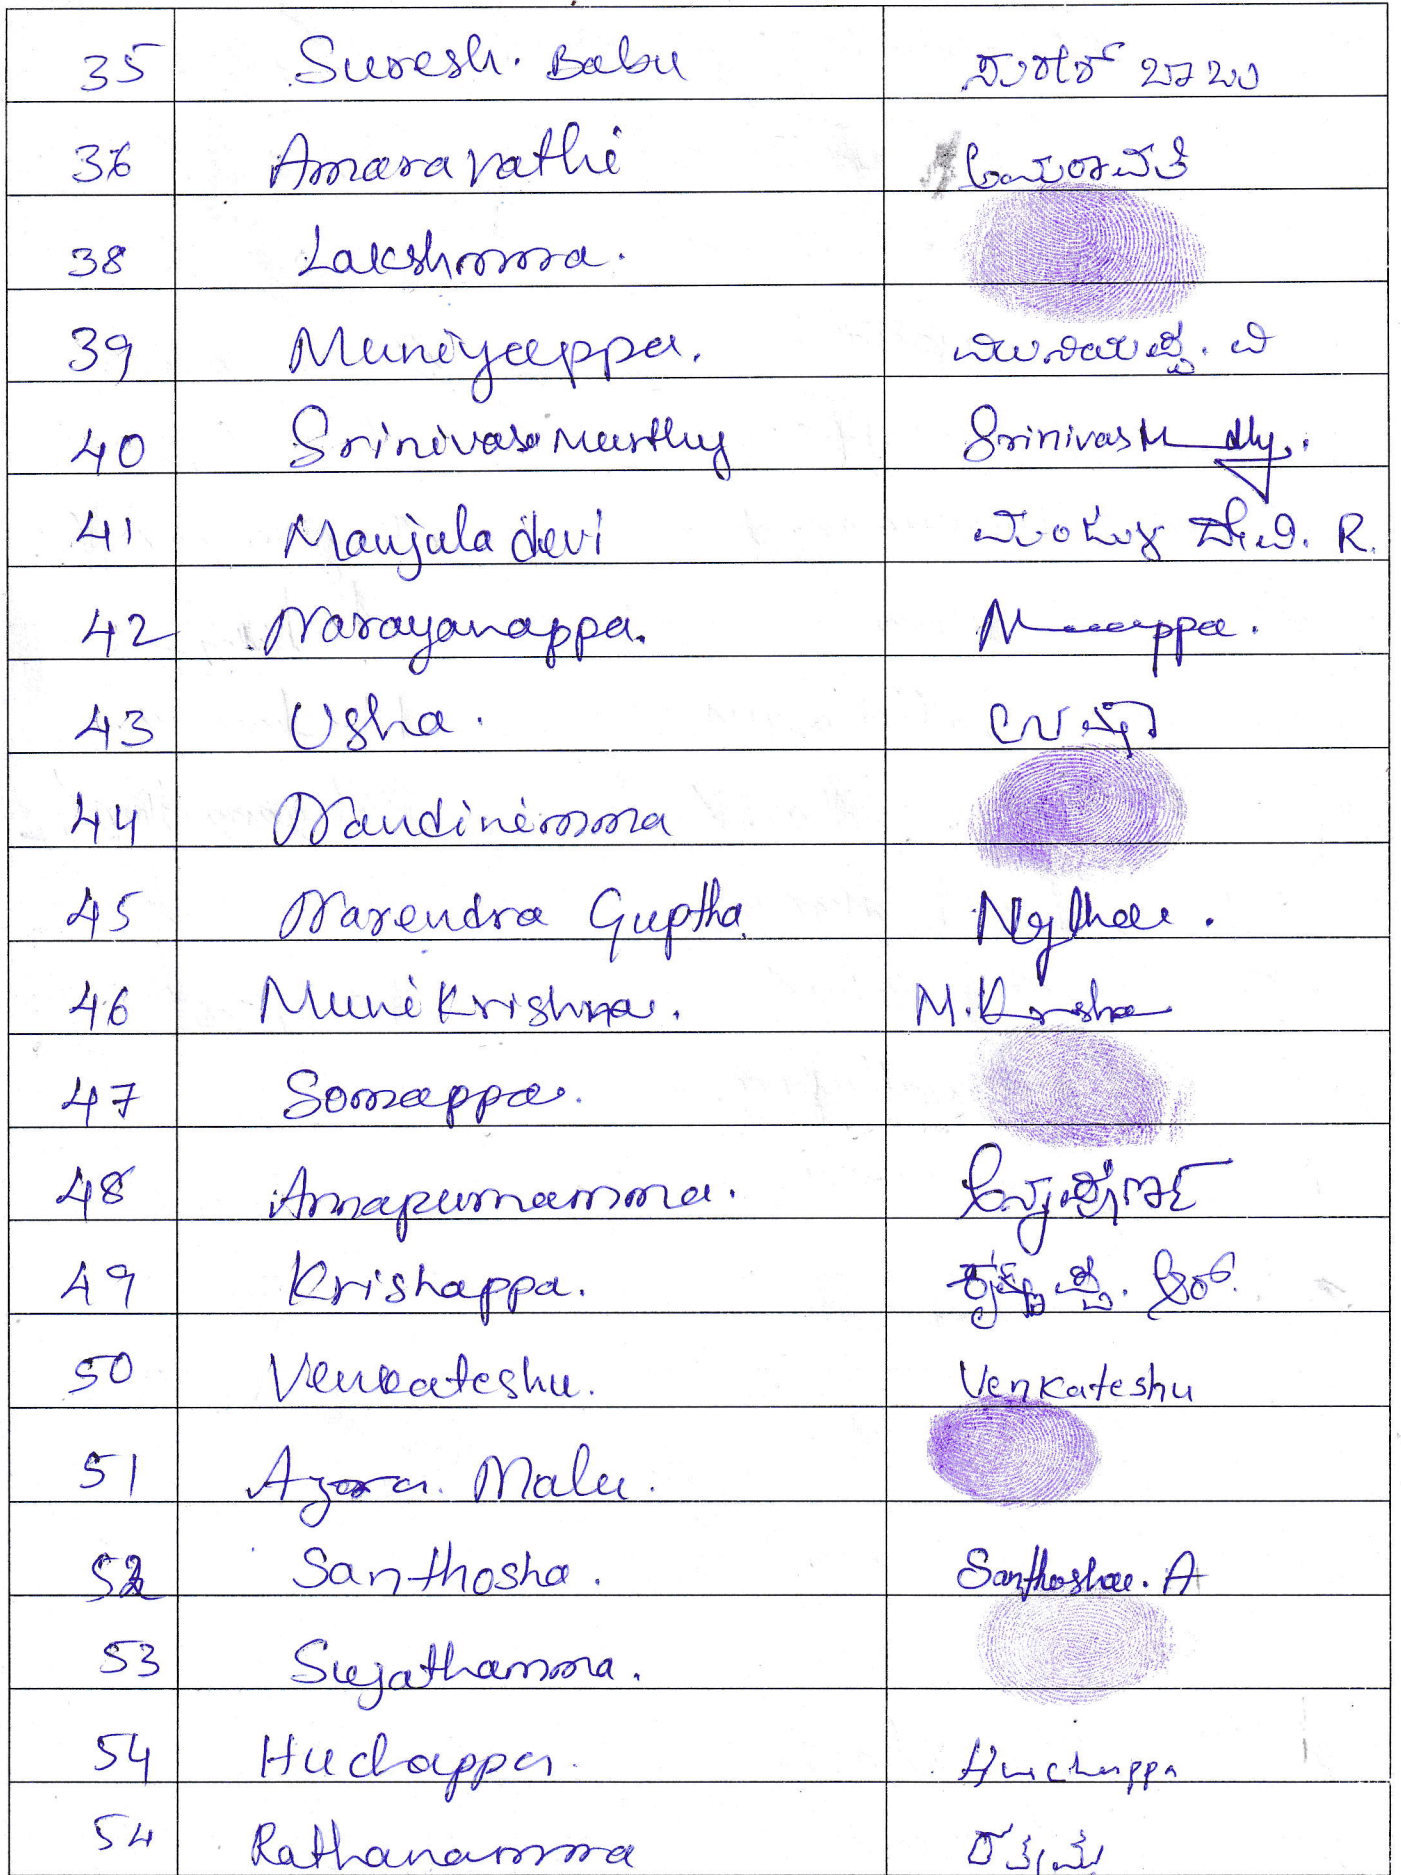 35 Suresh. Babu ಸುರೇಶ್ ಬಾಬು
36 Amaravathi ಅಮರಾವತಿ
38 Lakshmma.
39 Muniyappa. ಮುನಿಯಪ್ಪ. ವಿ
40 Srinivasa Murthy
41 Manjula devi ಮಂಜುಳ ದೇವಿ. R.
42 Narayanappa.
43 Usha. ಉಷಾ
44 Nandinimma
45 Narendra Guptha
46 Muni Krishna. M. Krisha
47 Somappa.
48 Annapurnamma.
49 Krishappa. ಕೃಷ್ಣಪ್ಪ. ಆರ್.
50 Venkateshu. Venkateshu
51 Malu.
52 Santhosha. Santhosha. A
53 Sujathamma.
54 Huchappa. Huchappa
54 Rathanamma